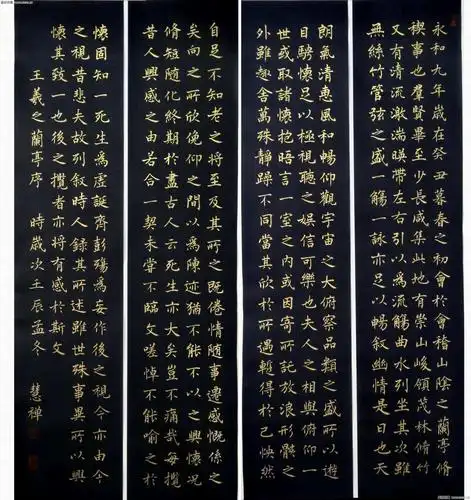 永和九年歲在癸丑暮春之初會於會稽山陰之蘭亭脩
禊事也羣賢畢至少長咸集此地有崇山峻領茂林脩竹
又有清流激湍暎帶左右引以爲流觴曲水列坐其次雖
無絲竹管弦之盛一觴一詠亦足以暢叙幽情是日也天
朗氣清惠風和暢仰觀宇宙之大俯察品類之盛所以遊
目騁懷足以極視聽之娛信可樂也夫人之相與俯仰一
世或取諸懷抱晤言一室之內或因寄所託放浪形骸之
外雖趣舍萬殊靜躁不同當其欣於所遇暫得於己怏然
自足不知老之將至及其所之既倦情隨事遷感慨係之
矣向之所欣俛仰之間以爲陳迹猶不能不以之興懷況
脩短隨化終期於盡古人云死生亦大矣豈不痛哉每攬
昔人興感之由若合一契未嘗不臨文嗟悼不能喻之於
懷固知一死生爲虛誕齊彭殤爲妄作後之視今亦由今
之視昔悲夫故列叙時人錄其所述雖世殊事異所以興
懷其致一也後之攬者亦將有感於斯文
王羲之蘭亭序 時歲次壬辰孟冬 慧禪